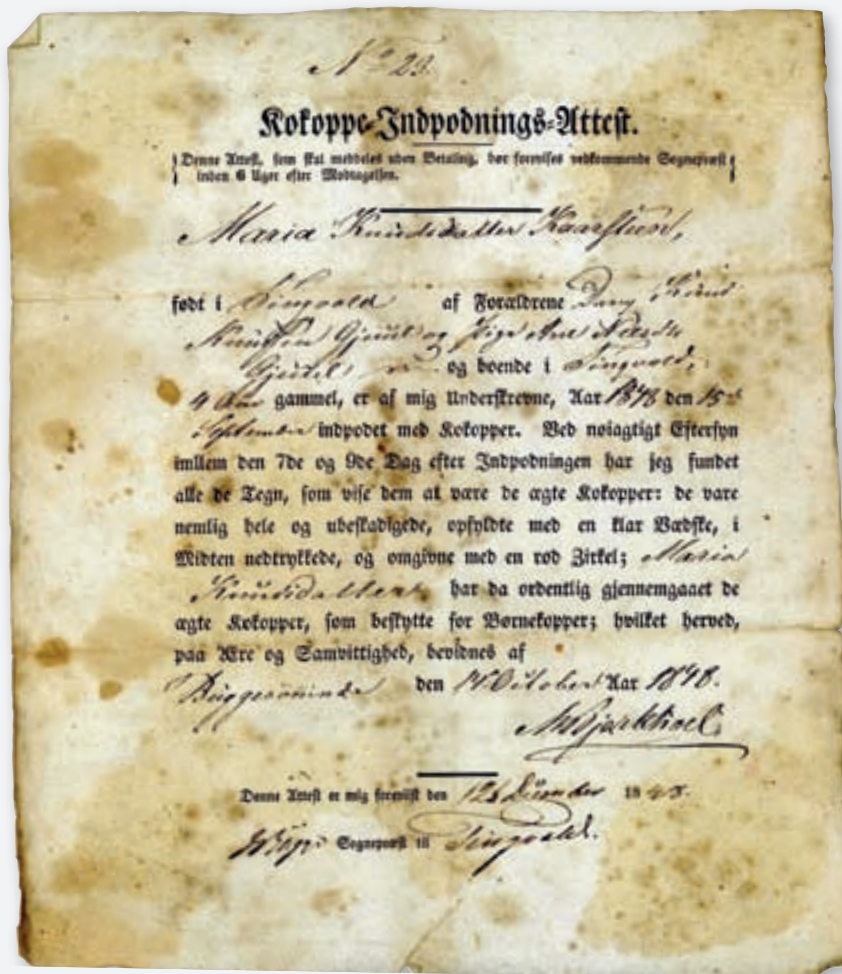 No 23.
Kokoppe-Indpodnings-Attest.
Denne Attest, som skal meddeles uden Betaling, bør forevises vedkommende Sognepræst
inden 6 Uger efter Modtagelsen.
Maria Knudsdatter
født i Tingvold af Forældrene Knud
Knudsen og Pige Ane
og boende i Tingvold,
4 Aar gammel, er af mig Underskrevne, Aar 1848 den 15de
September indpodet med Kokopper. Ved nøiagtigt Eftersyn
imllem den 7de og 9de Dag efter Indpodningen har jeg fundet
alle de Tegn, som vise dem at være de ægte Kokopper: de vare
nemlig hele og ubeskadigede, opfyldte med en klar Vædske, i
Midten nedtrykkede, og omgivne med en rød Zirkel; Maria
Knudsdatter har da ordentlig gjennemgaaet de
ægte Kokopper, som beskytte for Børnekopper; hvilket herved,
paa Ære og Samvittighed, bevidnes af
den October Aar 1848.
Denne Attest er mig foreviist den December 1848.
Sognepræst til Tingvold.